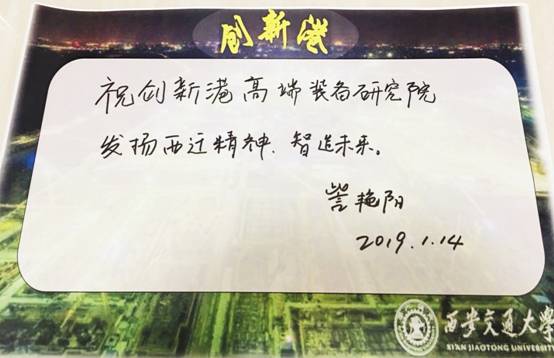 创新港
祝创新港高端装备研究院
发扬西迁精神、智造未来。
訾艳阳
2019.1.14
西安交通大学
XI'AN JIAOTONG UNIVERSITY